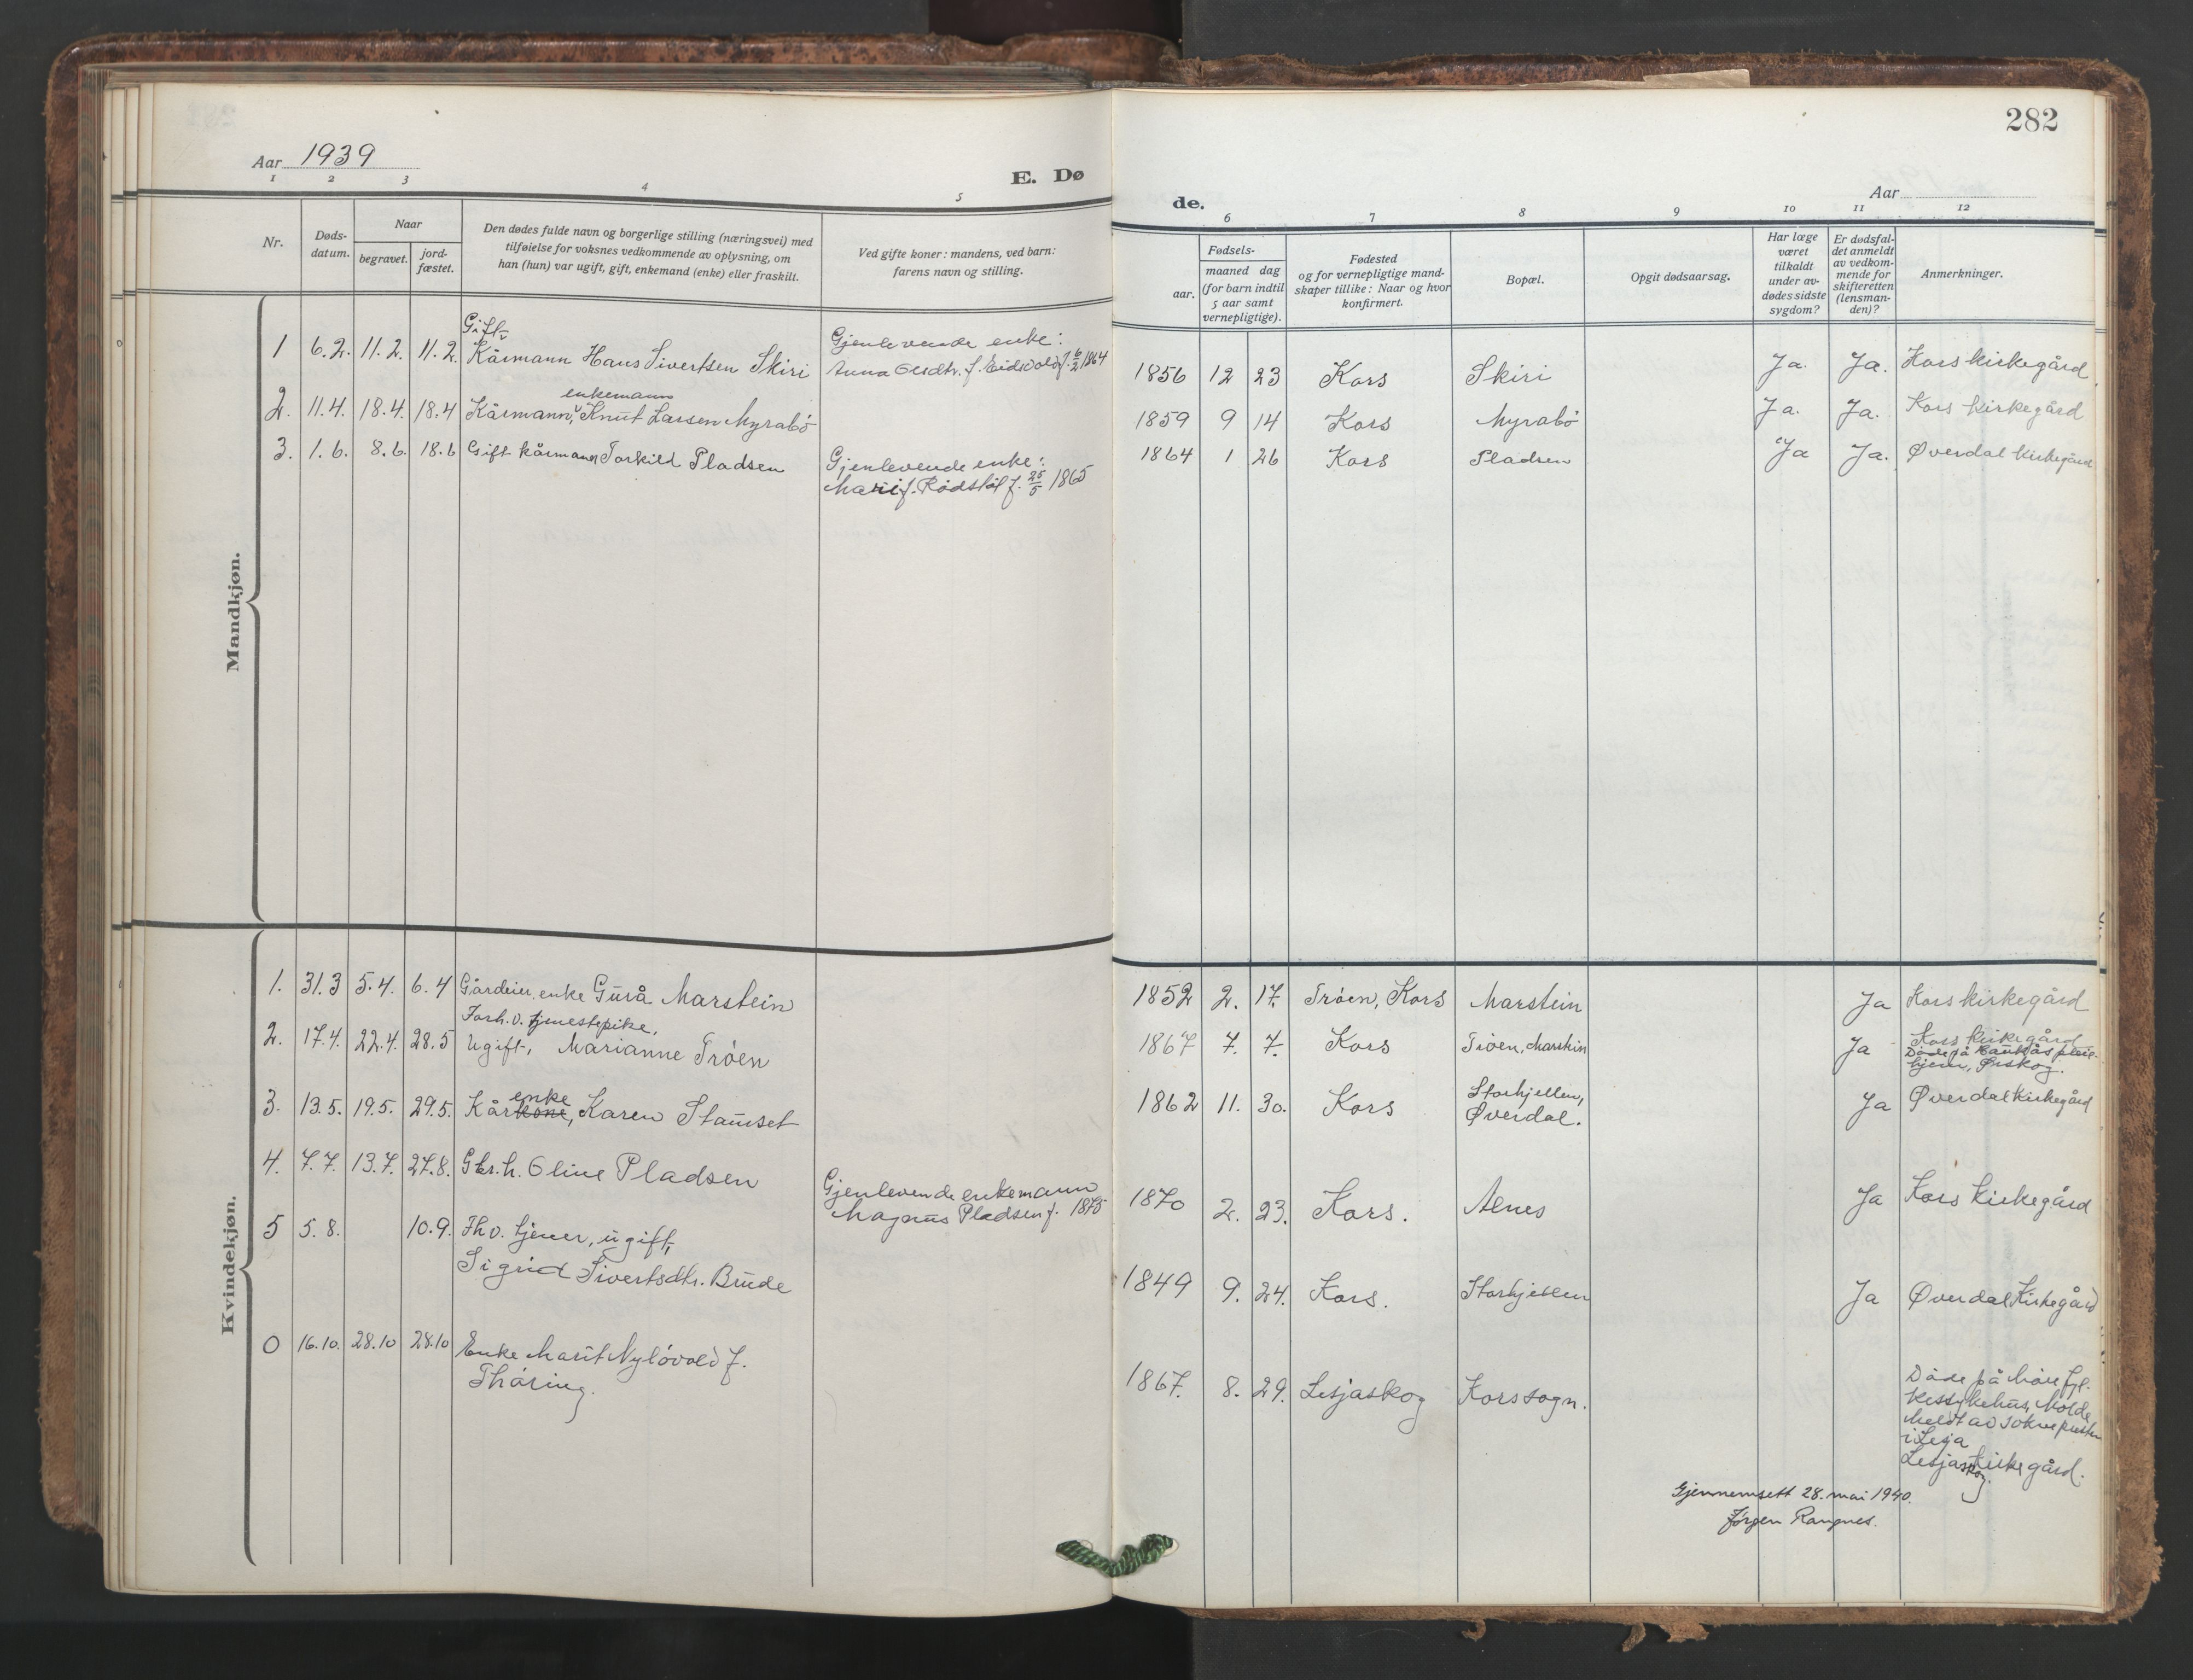 282
Aar 1939
E. Dø
de.
Aar
1 2 3 4 5
6 7 8 9 10 11 12
Nr.
Døds-
datum.
Naar
begravet.
jord-
fæstet.
Den dødes fulde navn og borgerlige stilling (næringsvei) med
tilføielse for voksnes vedkommende av oplysning, om
han (hun) var ugift, gift, enkemand (enke) eller fraskilt.
Ved gifte koner: mandens, ved barn:
farens navn og stilling.
Fødsels-
aar.
maaned dag
(for barn indtil
5 aar samt
vernepligtige).
Fødested
og for vernepligtige mand-
skaper tillike: Naar og hvor
konfirmert.
Bopæl.
Opgit dødsaarsag.
Har læge
været
tilkaldt
under av-
dødes sidste
sygdom?
Er dødsfal-
det anmeldt
av vedkom-
mende for
skifteretten
(lensman-
den)?
Anmerkninger.
Mandkjøn.
Gift
1 6.2. 11.2. 11.2. Kårmann Hans Sivertsen Skiri
Gjenlevende enke:
Anna Olsdtr. f. Eidsvold f. 6/2 1864
1856 12 23 Kors Skiri Ja. Ja. Kors kirkegård
enkemann
2. 11.4. 18.4. 18.4 Kårmann, Knut Larsen Myrabö
1859 9 14 Kors Myrabö Ja. Ja. Kors kirkegård
3. 1.6. 8.6. 18.6 Gift kårmann Torkild Pladsen
Gjenlevende enke:
Mari f. Rödstöl f. 25/5 1865
1864 1 26 Kors Pladsen Ja Ja. Øverdal kirkegård
Kvindekjøn.
1. 31.3 5.4. 6.4 Gårdeier enke Gurå Marstein
1852 2. 17. Tröen, Kors Marstein Ja Kors kirkegård
Forh.v. tjenestepike,
2. 17.4. 22.4. 28.5 Ugift, Marianne Tröen
1867 7. 7. Kors Tröen, Marstein Ja Kors kirkegård
Döde på pleie-
hjem, Ørskog.
enke
3. 13.5. 19.5. 29.5. Kårkone, Karen Stauset
1862 11. 30. Kors Storhjellen,
Øverdal. Ja Øverdal kirkegård
4. 7.7. 13.7. 27.8. Gbr.h. Oline Pladsen
Gjenlevende enkemann
Magnus Pladsen f. 1875
1870 2. 23. Kors. Alnes Ja Kors kirkegård
5 5.8. 10.9. Fhv. tjener, ugift,
Sigrid Sivertsdtr. Brude
1849 9. 24. Kors. Storhjellen Ja Øverdal Kirkegård
0 16.10. 28.10 28.10 Enke Marit Nylövold f.
Thöring.
1867. 8. 29. Lesjaskog Kors sogn.
Döde på Möre fyl-
kessykehus, Molde
Meldt av soknepresten
i Lesja
Lesjaskog kirkegård.
Gjennemsett 28. mai 1940.
Jørgen Rangnes.